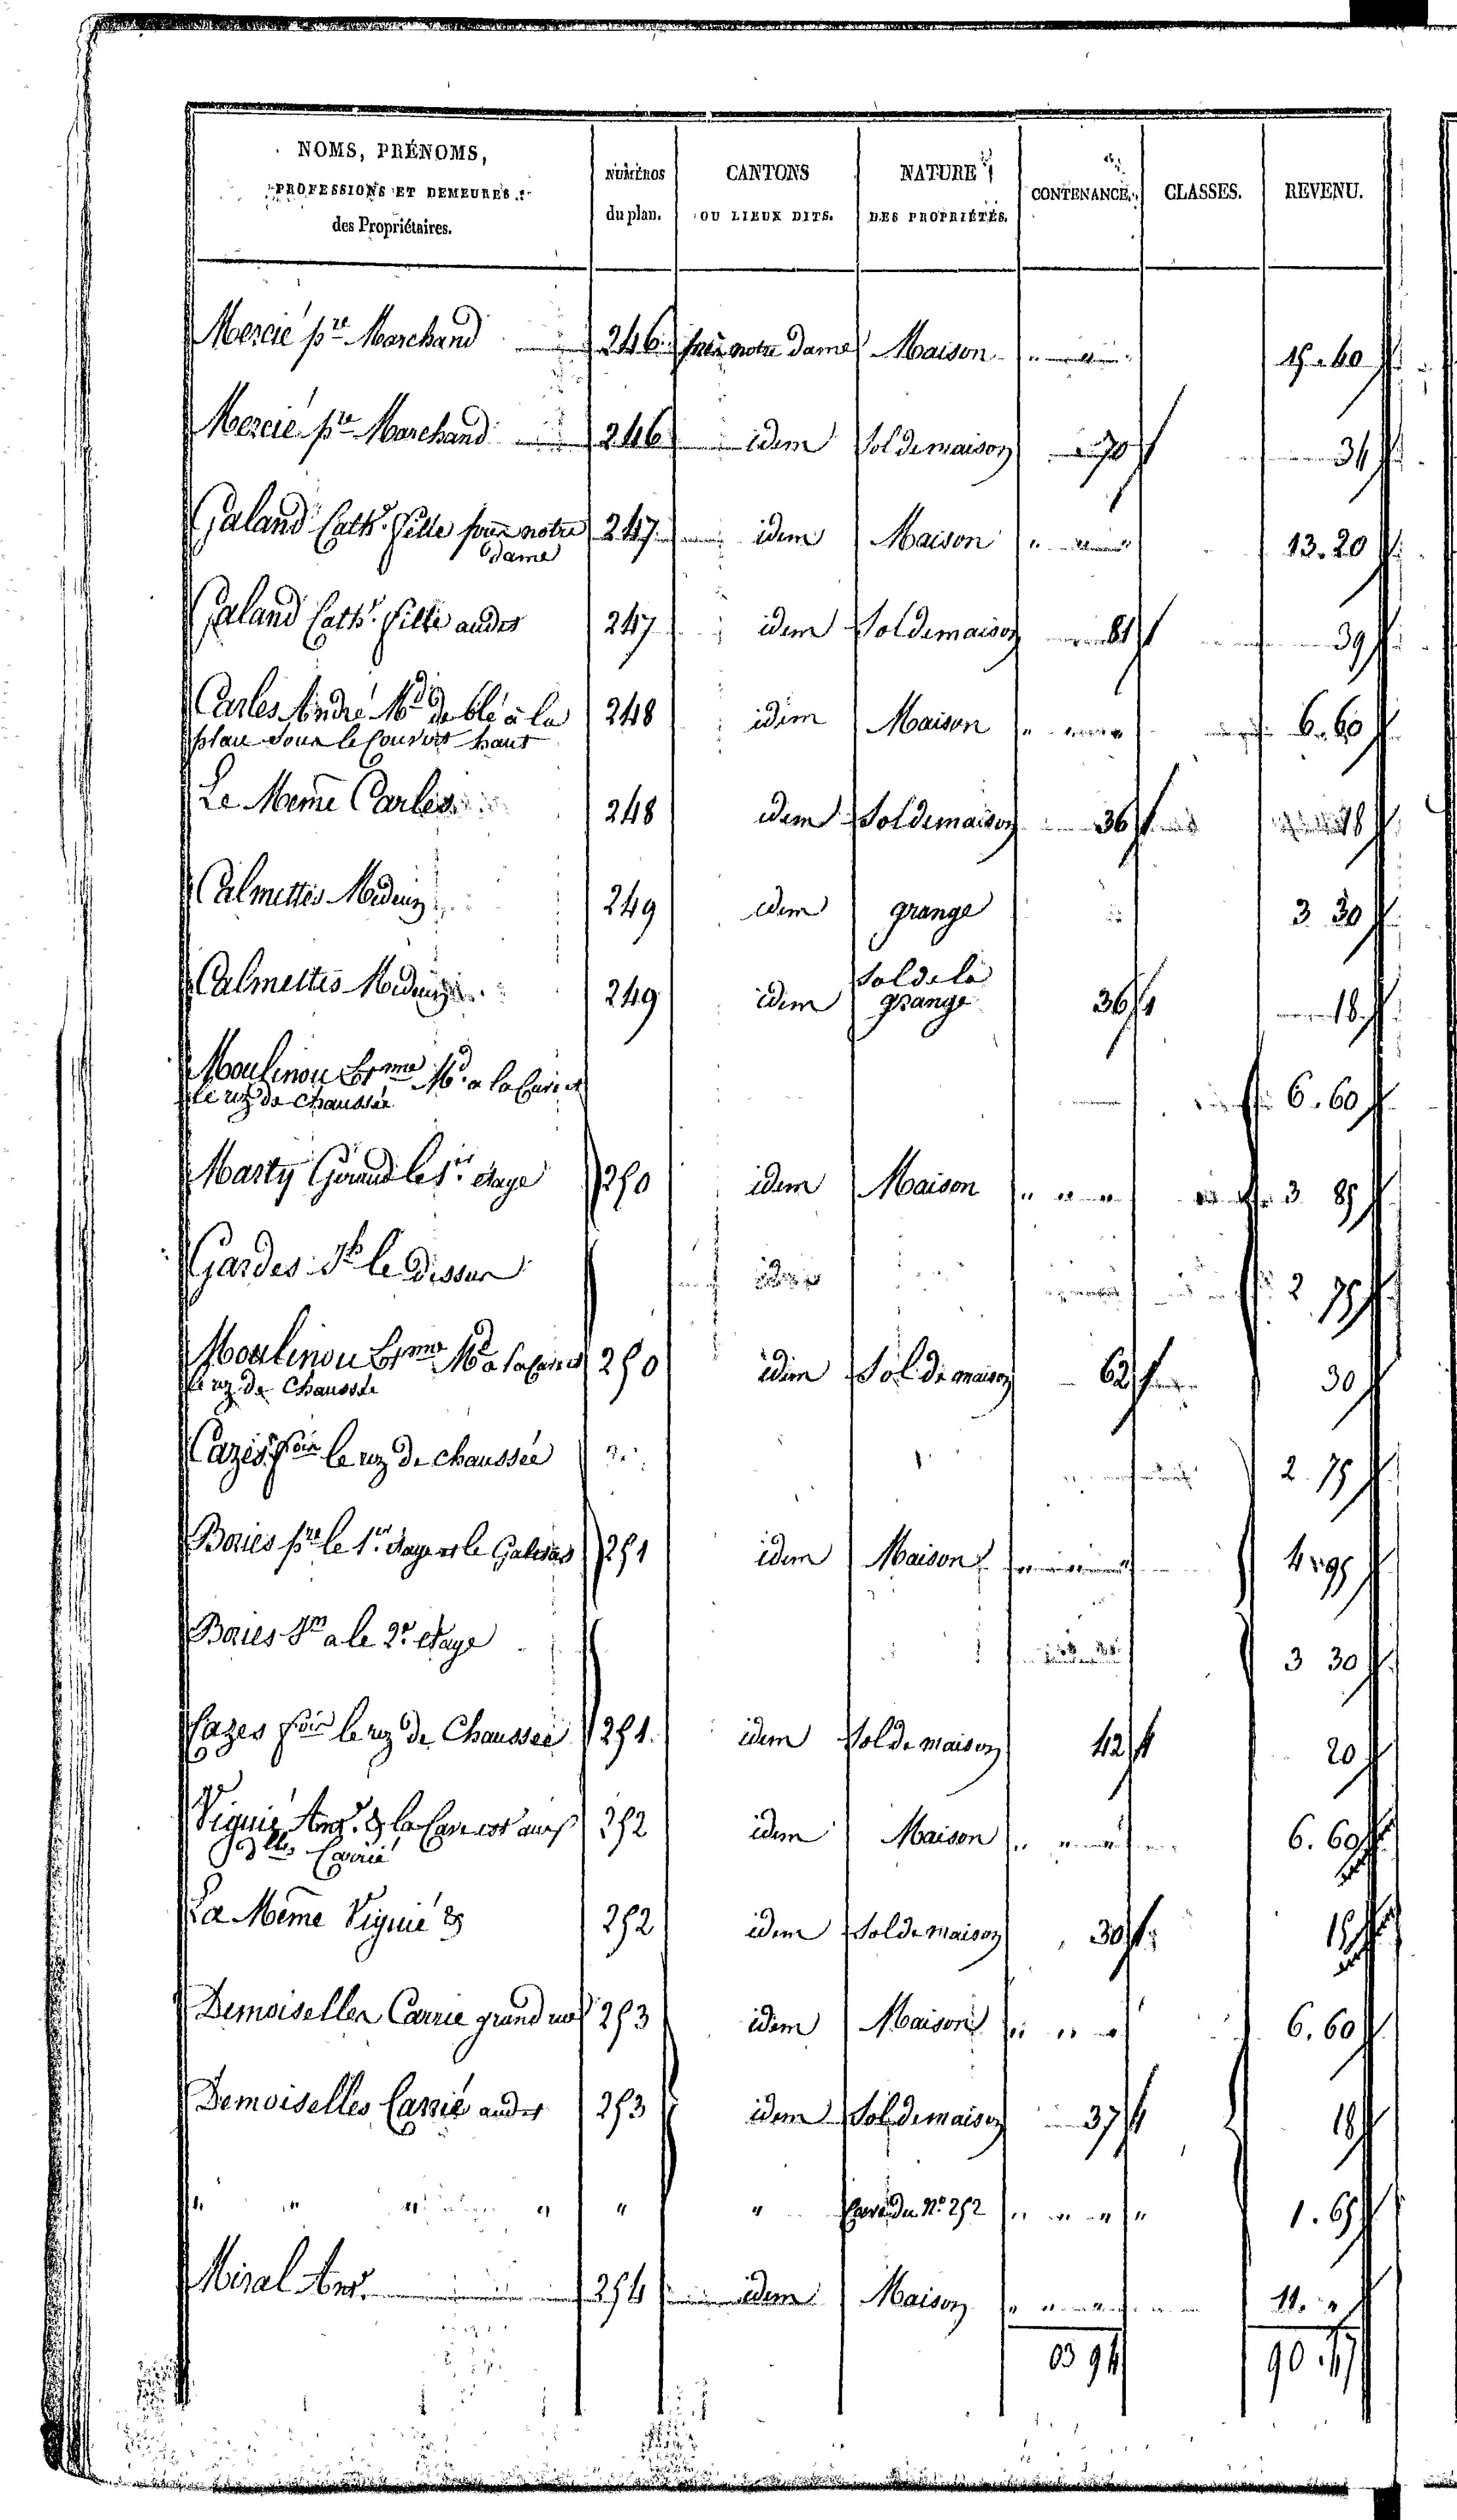 NOMS, PRÉNOMS,
PROFESSIONS ET DEMEURES
des Propriétaires.
NUMÉROS
du plan.
CANTONS
OU LIEUX DITS.
NATURE
DES PROPRIÉTÉS.
CONTENANCE.
CLASSES.
REVENU.
Mercié pre Marchand 246 notre dame Maison 15.60
Mercié pre Marchand 246 idem Sol de maison 70 34
Galand Cath. fille notre 247 idem Maison 13.20
dame
Galand Cath. fille 247 idem Sol de maison 81 39
Carles André Md de blé à la 248 idem Maison 6.60
place sous le Couvert haut
Le Meme Carles 248 idem Sol de maison 36 18
Calmettes Medecin 249 idem grange 3 30
Calmettes Medecin 249 idem Sol de la grange 36 18
Moulinou Md a la
le rez de chaussée 6.60
Marty Giraud le 1er etage 250 idem Maison 3 85
Gardes Jh le dessus 2 75
Moulinou Md a la 250 idem Sol de maison 62 30
le rez de Chaussée
Cazes foix le rez de chaussée 2 75
Bories pre le 1er etage et le Galetas 251 idem Maison 4.95
Bories a le 2e etage 3 30
Cazes foix le rez de Chaussée 251 idem Sol de maison 42 20
Viguié la Cave est aux 252 idem Maison 6.60
Dlles Carrié
La Meme Viguié 252 idem Sol de maison 30 15
Demoiselles Carrié grand rue 253 idem Maison 6.60
Demoiselles Carrié 253 idem Sol de maison 37 18
" " " " " " Cave du No 252 " " " " 1.65
Miral Ant. 254 idem Maison 11. "
03 94 90.47